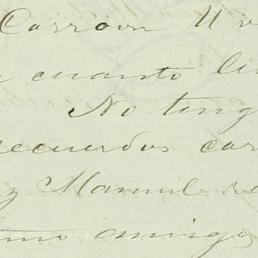 Carroon U v
cuanto li
No teng
recuerdos car
y Manuel re
timo amigo